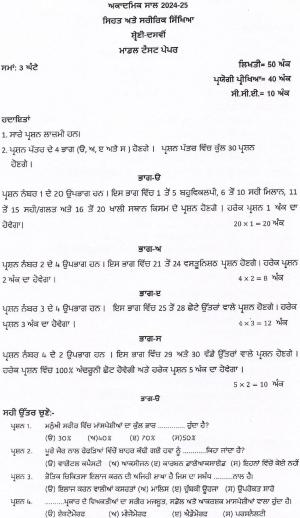 ਅਕਾਦਮਿਕ ਸਾਲ 2024-25
ਸਿਹਤ ਅਤੇ ਸਰੀਰਿਕ ਸਿੱਖਿਆ
ਸ਼੍ਰੇਣੀ-ਦਸਵੀਂ
ਮਾਡਲ ਟੈਸਟ ਪੇਪਰ
ਸਮਾਂ: 3 ਘੰਟੇ
ਲਿਖਤੀ= 50 ਅੰਕ
ਪ੍ਰਯੋਗੀ ਪ੍ਰੀਖਿਆ= 40 ਅੰਕ
ਸੀ.ਸੀ.ਈ.= 10 ਅੰਕ
ਹਦਾਇਤਾਂ
1. ਸਾਰੇ ਪ੍ਰਸ਼ਨ ਲਾਜ਼ਮੀ ਹਨ।
2. ਪ੍ਰਸ਼ਨ ਪੱਤਰ ਦੇ 4 ਭਾਗ (ੳ, ਅ, ੲ ਅਤੇ ਸ ) ਹੋਣਗੇ । ਪ੍ਰਸ਼ਨ ਪੱਤਰ ਵਿੱਚ ਕੁੱਲ 30 ਪ੍ਰਸ਼ਨ
ਹੋਣਗੇ ।
ਭਾਗ-ੳ
ਪ੍ਰਸ਼ਨ ਨੰਬਰ 1 ਦੇ 20 ਉਪਭਾਗ ਹਨ । ਇਸ ਭਾਗ ਵਿੱਚ 1 ਤੋਂ 5 ਬਹੁਵਿਕਲਪੀ, 6 ਤੋਂ 10 ਸਹੀ ਮਿਲਾਨ, 11
ਤੋਂ 15 ਸਹੀ/ਗਲਤ ਅਤੇ 16 ਤੋਂ 20 ਖਾਲੀ ਸਥਾਨ ਕਿਸਮ ਦੇ ਪ੍ਰਸ਼ਨ ਹੋਣਗੇ । ਹਰੇਕ ਪ੍ਰਸ਼ਨ 1 ਅੰਕ ਦਾ
ਹੋਵੇਗਾ। 20 x 1 = 20 ਅੰਕ
ਭਾਗ-ਅ
ਪ੍ਰਸ਼ਨ ਨੰਬਰ 2 ਦੇ 4 ਉਪਭਾਗ ਹਨ। ਇਸ ਭਾਗ ਵਿੱਚ 21 ਤੋਂ 24 ਵਸਤੂਨਿਸ਼ਠ ਪ੍ਰਸ਼ਨ ਹੋਣਗੇ। ਹਰੇਕ ਪ੍ਰਸ਼ਨ
2 ਅੰਕ ਦਾ ਹੋਵੇਗਾ । 4 x 2 = 8 ਅੰਕ
ਭਾਗ-ੲ
ਪ੍ਰਸ਼ਨ ਨੰਬਰ 3 ਦੇ 4 ਉਪਭਾਗ ਹਨ । ਇਸ ਭਾਗ ਵਿੱਚ 25 ਤੋਂ 28 ਛੋਟੇ ਉੱਤਰਾਂ ਵਾਲੇ ਪ੍ਰਸ਼ਨ ਹੋਣਗੇ। ਹਰੇਕ
ਪ੍ਰਸ਼ਨ 3 ਅੰਕ ਦਾ ਹੋਵੇਗਾ । 4 x 3 = 12 ਅੰਕ
ਭਾਗ-ਸ
ਪ੍ਰਸ਼ਨ ਨੰਬਰ 4 ਦੇ 2 ਉਪਭਾਗ ਹਨ । ਇਸ ਭਾਗ ਵਿੱਚ 29 ਅਤੇ 30 ਵੱਡੇ ਉੱਤਰਾਂ ਵਾਲੇ ਪ੍ਰਸ਼ਨ ਹੋਣਗੇ ।
ਹਰੇਕ ਪ੍ਰਸ਼ਨ ਵਿੱਚ 100% ਅੰਦਰੂਨੀ ਛੋਟ ਹੋਵੇਗੀ ਅਤੇ ਹਰੇਕ ਪ੍ਰਸ਼ਨ 5 ਅੰਕ ਦਾ ਹੋਵੇਗਾ ।
5 x 2 = 10 ਅੰਕ
ਭਾਗ-ੳ
ਸਹੀ ਉੱਤਰ ਚੁਣੋ:-
ਪ੍ਰਸ਼ਨ 1. ਮਨੁੱਖੀ ਸਰੀਰ ਵਿੱਚ ਮਾਂਸਪੇਸ਼ੀਆਂ ਦਾ ਕੁੱਲ ਭਾਰ .......... ਹੁੰਦਾ ਹੈ?
(ੳ) 30% (ਅ)40% (ੲ) 70% (ਸ)50%
ਪ੍ਰਸ਼ਨ 2. ਪੂਰੇ ਜ਼ੋਰ ਨਾਲ ਫੇਫੜਿਆਂ ਵਿੱਚੋਂ ਬਾਹਰ ਕੱਢੀ ਗਈ ਹਵਾ ਨੂੰ ..........ਕਿਹਾ ਜਾਂਦਾ ਹੈ?
(ੳ) ਵਾਈਟਲ ਕਪੈਸਟੀ (ਅ) ਆਕਸੀਜਨ (ੲ) ਕਾਰਬਨ ਡਾਈਆਕਸਾਈਡ (ਸ) ਇਹਨਾਂ ਵਿੱਚੋਂ ਕੋਈ ਨਹੀਂ
ਪ੍ਰਸ਼ਨ 3. ਭੌਤਿਕ ਚਿਕਿਤਸਾ ਇਲਾਜ ਕਰਨ ਦੀ ਅਜਿਹੀ ਸ਼ਾਖਾ ਹੈ ਜਿਸ ਦਾ ਸਬੰਧ ..........ਨਾਲ ਹੈ।
(ੳ) ਇਲਾਜ ਕਰਨ ਵਾਲੀਆਂ ਕਸਰਤਾਂ (ਅ) ਮਾਲਿਸ਼ (ੲ) ਚੁੰਬਕੀ ਊਰਜਾ (ਸ) ਉਪਰੋਕਤ ਸਾਰੇ
ਪ੍ਰਸ਼ਨ 4. ..........ਪ੍ਰਕਾਰ ਦੇ ਵਿਅਕਤੀਆਂ ਦਾ ਸਰੀਰ ਮਜਬੂਤ, ਸਡੌਲ ਅਤੇ ਆਕਰਸ਼ਕ ਮਾਂਸਪੇਸ਼ੀਆਂ ਵਾਲਾ ਹੁੰਦਾ ਹੈ।
(ੳ) ਏਕਟੋਮੋਰਫ (ਅ) ਮੀਜੋਮੋਰਫ (ੲ) ਐਂਡੋਮੋਰਫ (ਸ) ਪਰਸਨੈਲਟੀ